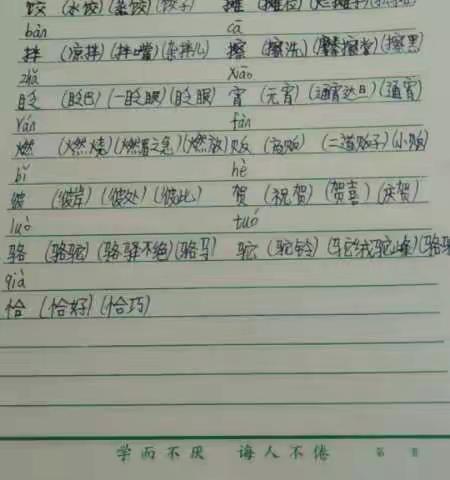 饺 (水饺) (蒸饺) (饺子) 摊 (摊位)
bàn cā
拌 (凉拌) (拌嘴) (杂拌儿) 擦 (擦洗) (擦黑)
zhǎ xiāo
眨 (眨巴) (一眨眼) (眨眼) 宵 (元宵) (通宵达旦) (通宵)
rán fàn
燃 (燃烧) (燃眉之急) (燃放) 贩 (商贩) (二道贩子) (小贩)
bǐ hè
彼 (彼岸) (彼处) (彼此) 贺 (祝贺) (贺喜) (庆贺)
luò tuó
骆 (骆驼) (骆驿不绝) (骆马) 驼 (驼铃) (驼绒) (驼峰)
qià
恰 (恰好) (恰巧)
学而不厌 诲人不倦 第 页